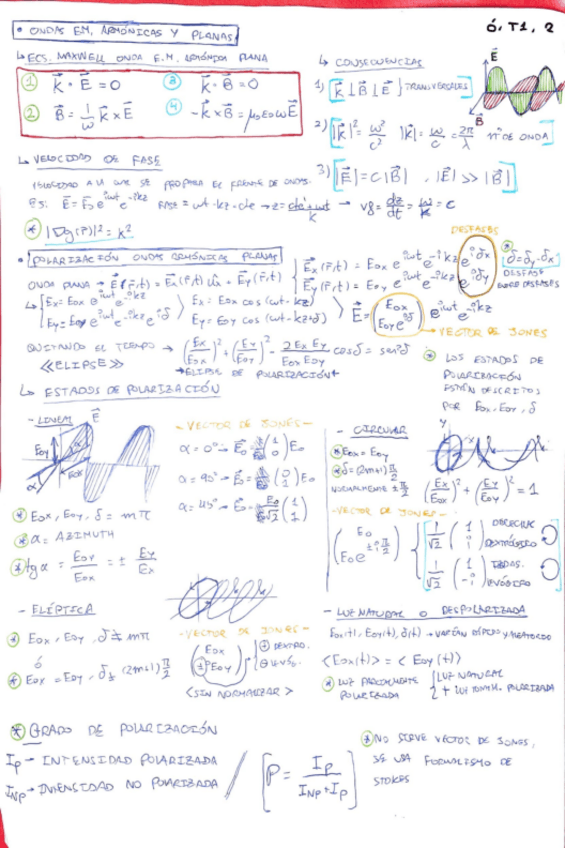 Ó, T1, 2
• ONDAS EM, ARMÓNICAS Y PLANAS
↳ ECS. MAXWELL ONDA E.M. ARMÓNICA PLANA
① k⃗ · E⃗ = 0 ③ k⃗ · B⃗ = 0
② B⃗ = 1/ω k⃗ × E⃗ ④ -k⃗ × B⃗ = μ₀ε₀ω E⃗
↳ CONSECUENCIAS
1) k⃗ ⊥ B⃗ ⊥ E⃗ } TRANSVERSALES
2) |k⃗|² = ω²/c² |k⃗| = ω/c = 2π/λ nº DE ONDA
3) |E⃗| = c|B⃗|, |E⃗| >> |B⃗|
E⃗
B⃗
↳ VELOCIDAD DE FASE
VELOCIDAD A LA QUE SE PROPAGA EL FRENTE DE ONDAS.
EJ: E⃗ = E⃗₀ e^{iωt} e^{-ikz} FASE = ωt - kz = cte → z = (cte + ωt)/k → vg = dz/dt = ω/k = c
* |∇g(r⃗)|² = k²
• POLARIZACIÓN ONDAS ARMÓNICAS PLANAS
DESFASES
ONDA PLANA → E⃗(r⃗,t) = E⃗x(r⃗,t) u⃗x + E⃗y(r⃗,t) { E⃗x(r⃗,t) = E₀x e^{iωt} e^{-ikz} e^{iδx}
E⃗y(r⃗,t) = E₀y e^{iωt} e^{-ikz} e^{iδy}
* δ = δy - δx
DESFASE ENTRE DESFASES
↳ { Ex = E₀x e^{iωt} e^{-ikz} } Ex = E₀x cos(ωt - kz)
Ey = E₀y e^{iωt} e^{-ikz} e^{iδ} } Ey = E₀y cos(ωt - kz + δ)
E⃗ = (E₀x E₀y e^{iδ}) e^{iωt} e^{-ikz}
→ VECTOR DE JONES
QUITANDO EL TIEMPO → (Ex/E₀x)² + (Ey/E₀y)² - 2ExEy/E₀xE₀y cosδ = sen²δ
<<ELIPSE>>
→ELIPSE DE POLARIZACIÓN←
* LOS ESTADOS DE
POLARIZACIÓN
ESTÁN DESCRITOS
POR E₀x, E₀y, δ
↳ ESTADOS DE POLARIZACIÓN
- LINEAL
E⃗
E₀y
E₀x
α
* E₀x, E₀y, δ = mπ
* α = AZIMUTH
* tgα = E₀y/E₀x = ± Ey/Ex
- VECTOR DE JONES -
α = 0° → E⃗₀ = (1 0) E₀
α = 90° → E⃗₀ = (0 1) E₀
α = 45° → E⃗₀ = E₀/√2 (1 1)
- CIRCULAR
* E₀x = E₀y
* δ = (2m+1) π/2
NORMALMENTE ± π/2
y
(Ex/E₀x)² + (Ey/E₀y)² = 1
- VECTOR DE JONES -
(E₀ E₀ e^{±iπ/2}) { 1/√2 (1 i) DERECHAS DEXTRÓGIRO
1/√2 (1 -i) IZDAS. LEVÓGIRO
- ELÍPTICA
* E₀x, E₀y, δ ≠ mπ
ó
* E₀x ≠ E₀y, δ = (2m+1) π/2
- VECTOR DE JONES -
(E₀x ±iE₀y) { ⊕ DEXTRO.
⊖ LEVO.
<SIN NORMALIZAR>
- LUZ NATURAL O DESPOLARIZADA
E₀x(t), E₀y(t), δ(t) → VARÍAN RÁPIDO Y ALEATORIO
<E₀x(t)> = <E₀y(t)>
* LUZ PARCIALMENTE POLARIZADA { LUZ NATURAL
+ LUZ TOTALM. POLARIZADA
* GRADO DE POLARIZACIÓN
I_P → INTENSIDAD POLARIZADA
I_NP → INTENSIDAD NO POLARIZADA
P = I_P / (I_NP + I_P)
* NO SIRVE VECTOR DE JONES,
SE USA FORMALISMO DE
STOKES